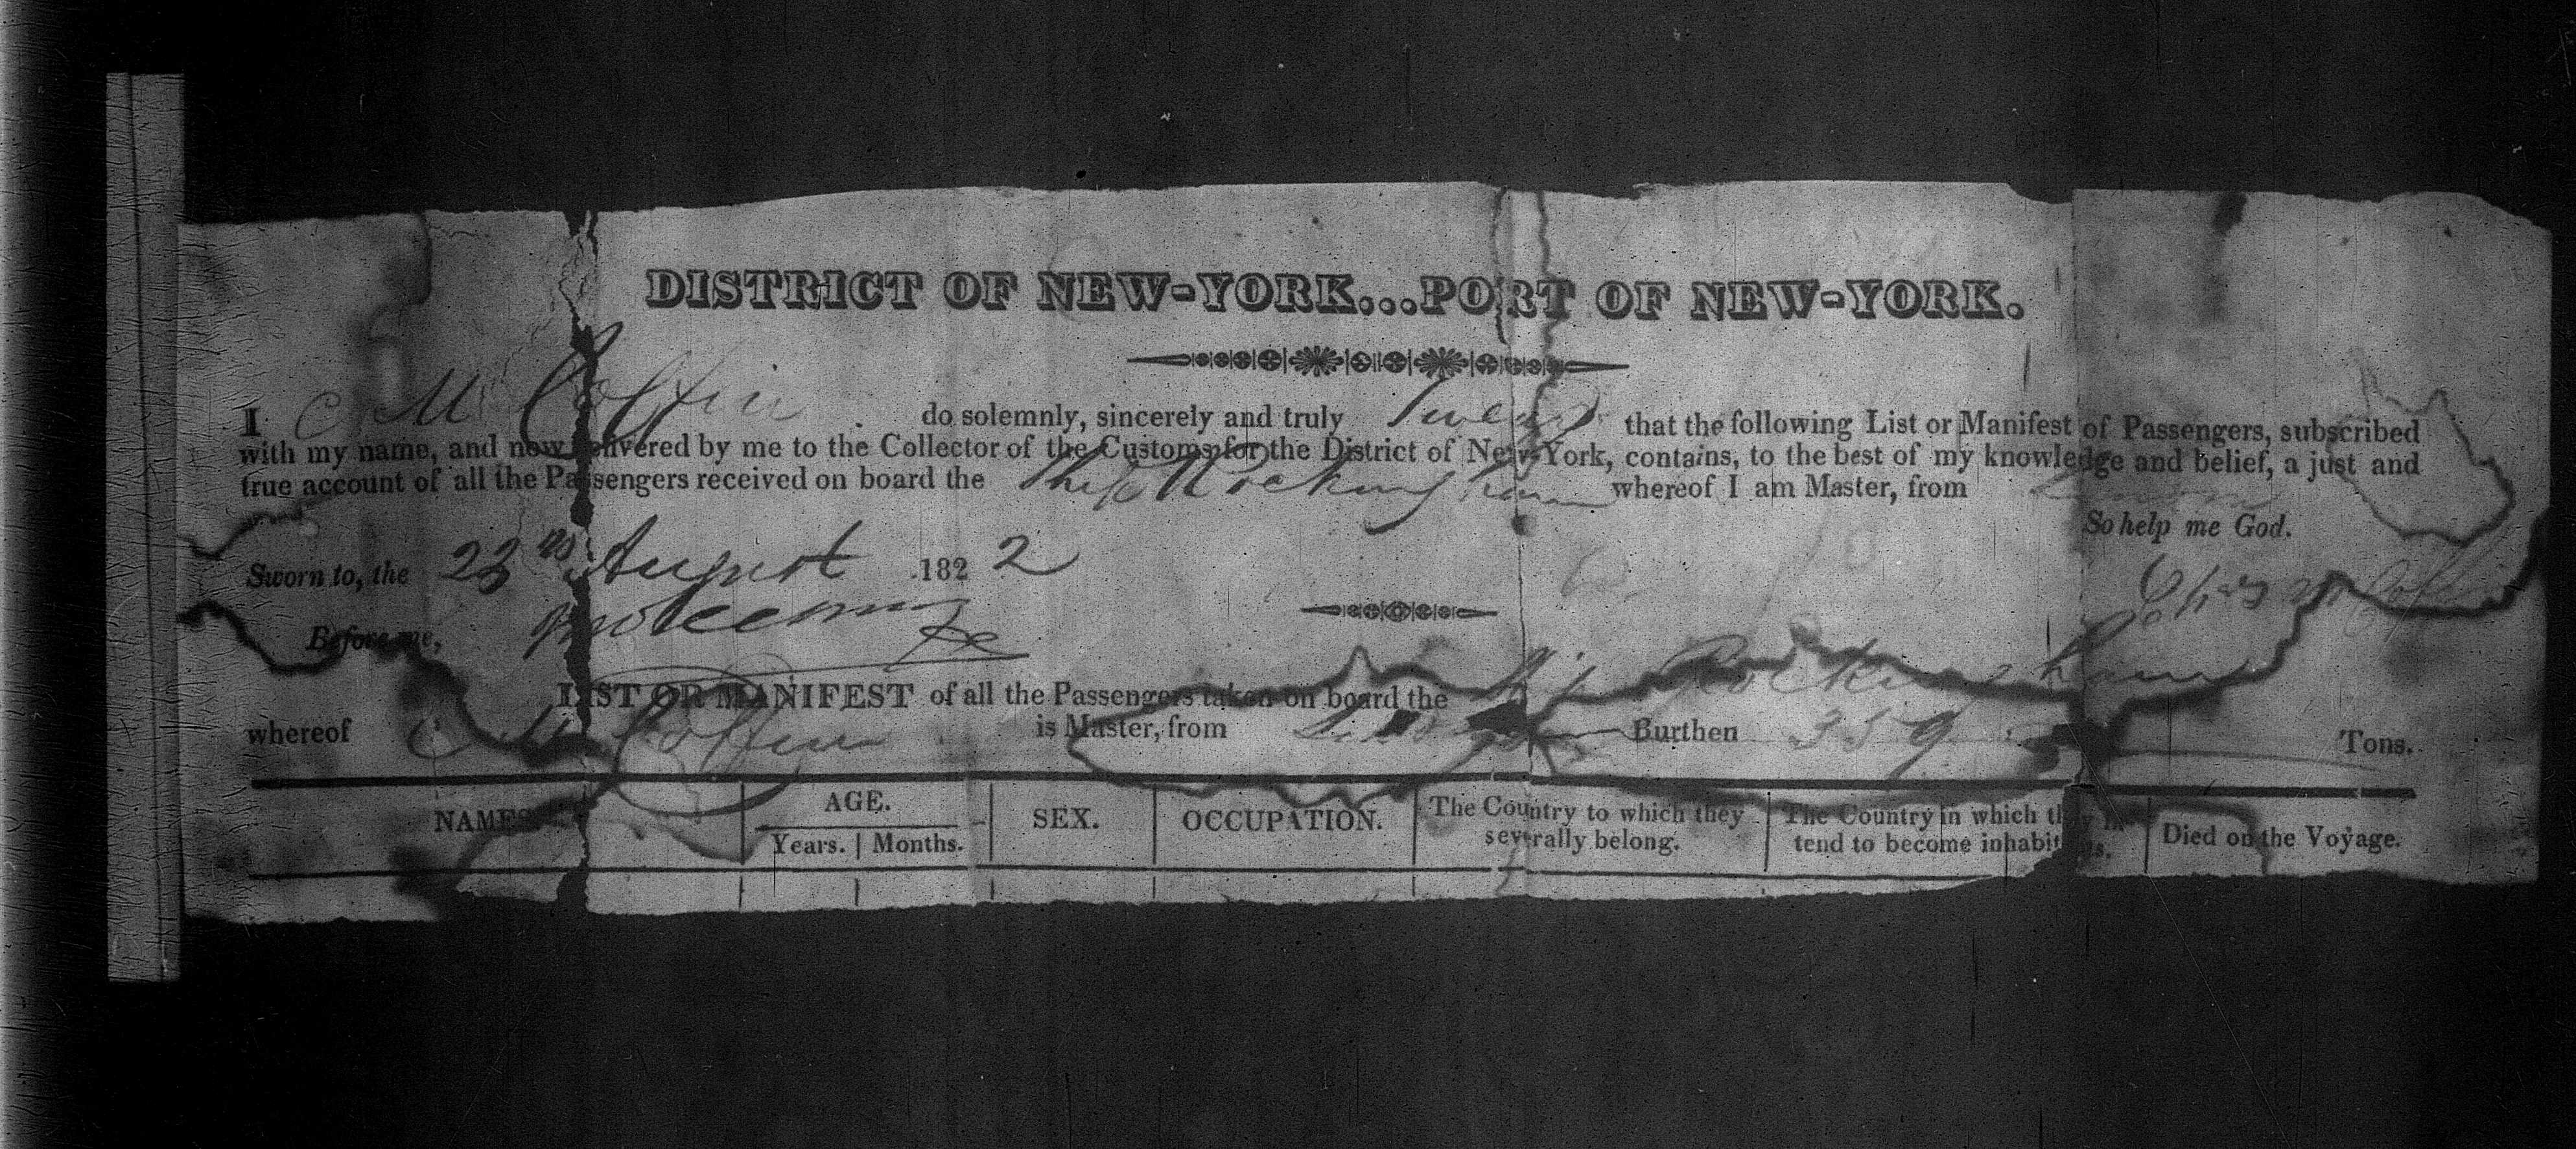 DISTRICT OF NEW-YORK...PORT OF NEW-YORK.
I C M Coffin do solemnly, sincerely and truly Swear that the following List or Manifest of Passengers, subscribed
with my name, and now delivered by me to the Collector of the Customs for the District of New-York, contains, to the best of my knowledge and belief, a just and
true account of all the Passengers received on board the Ship Rockingham whereof I am Master, from
So help me God.
Sworn to, the August 1822
Chas M Coffin
Before me,
LIST OR MANIFEST of all the Passengers taken on board the Ship Rockingham
whereof C M Coffin is Master, from Burthen 359 Tons.
NAMES. AGE. SEX. OCCUPATION. The Country to which they severally belong. The Country in which they intend to become inhabitants. Died on the Voyage.
Years. Months.